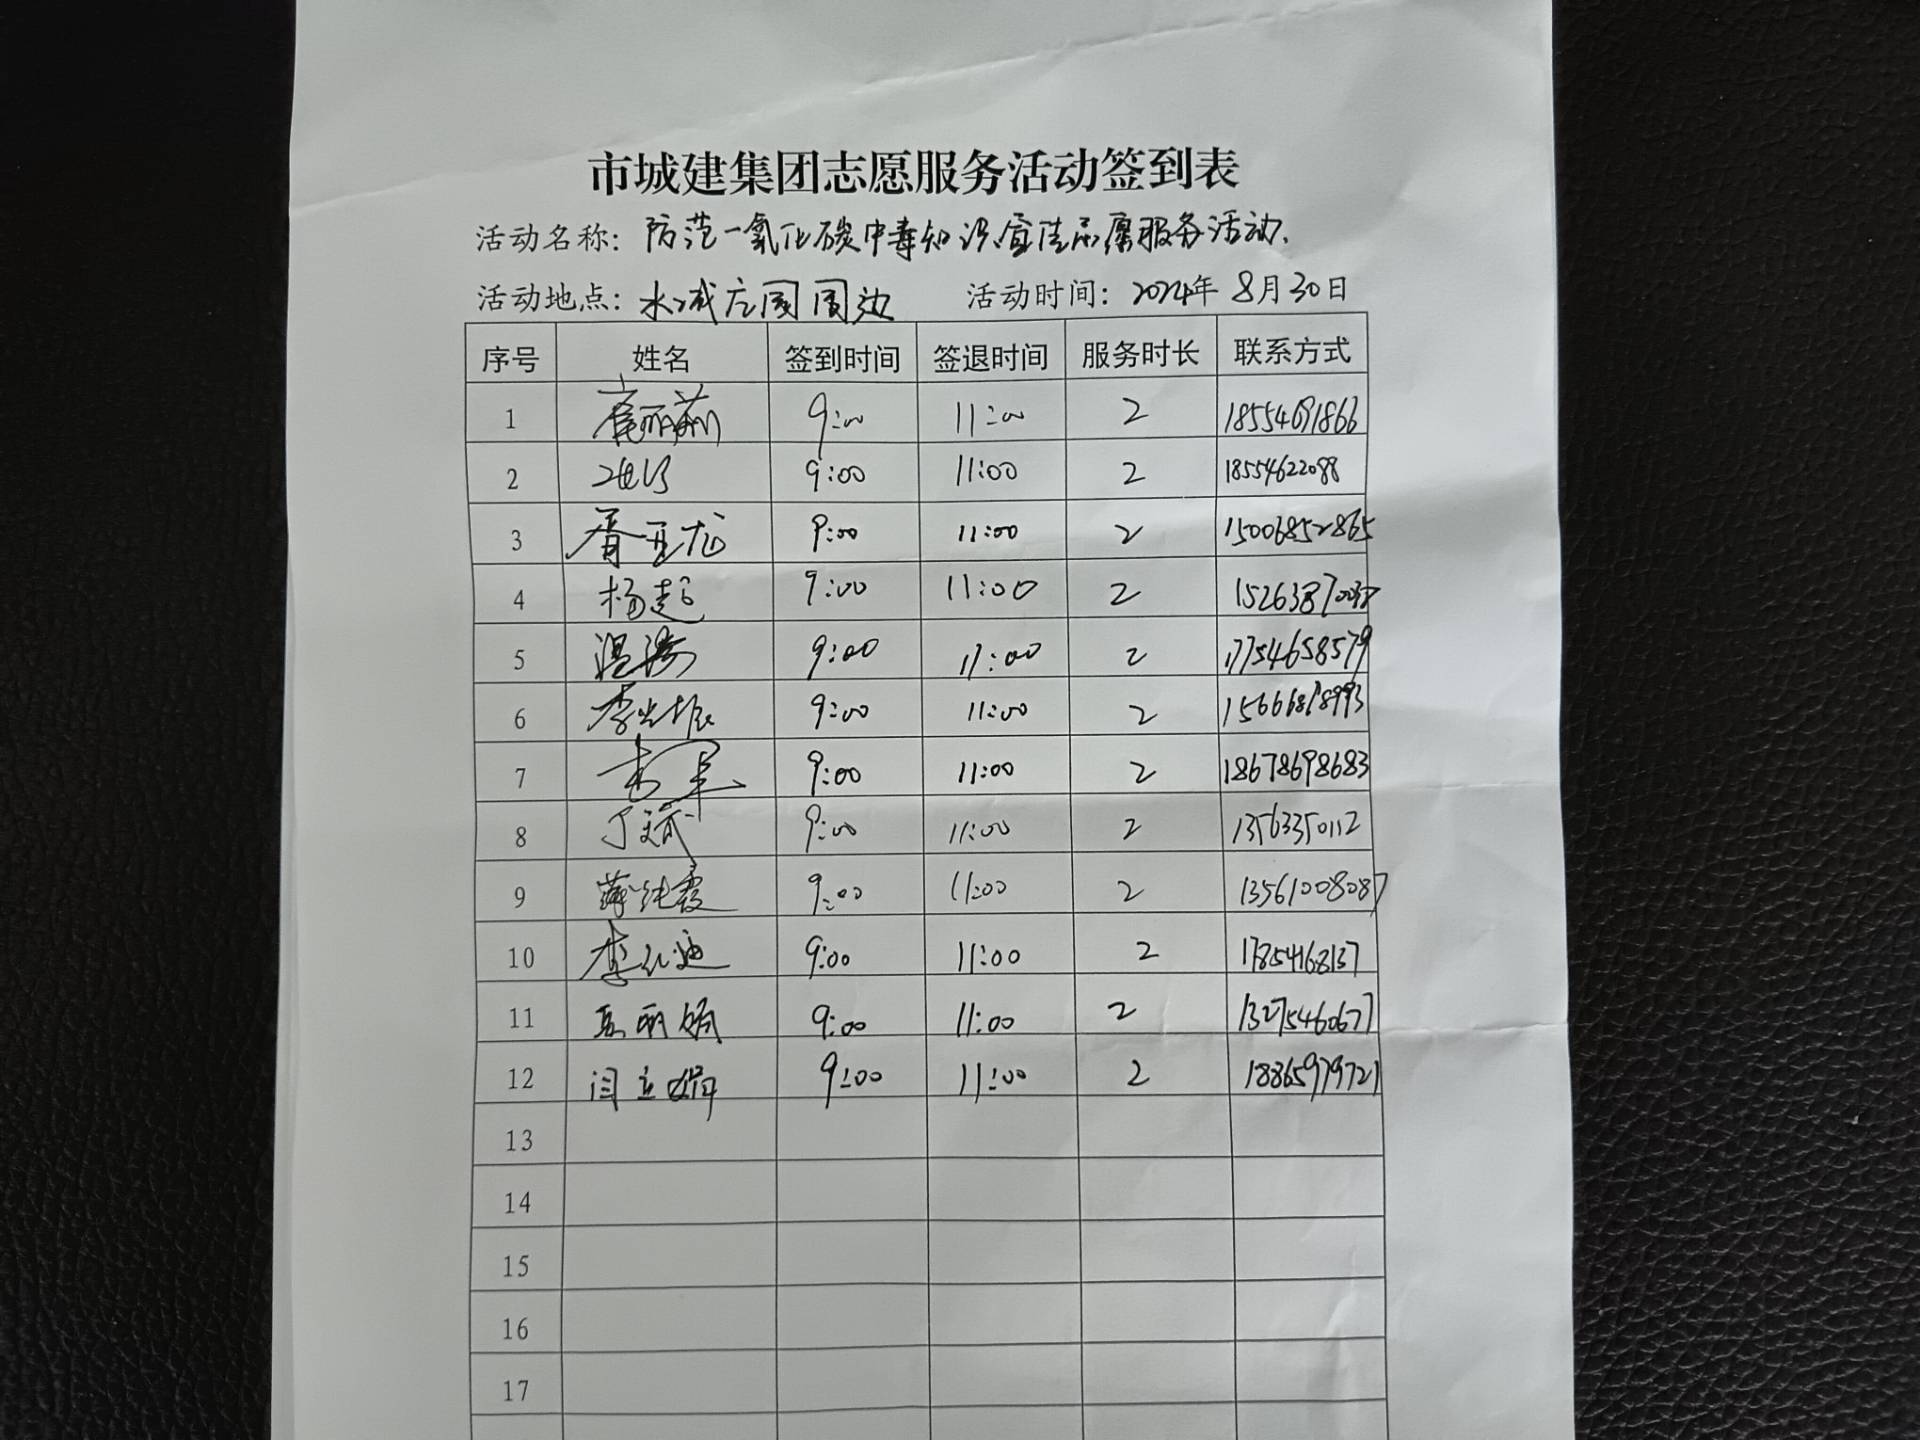 市城建集团志愿服务活动签到表
活动名称：防范一氧化碳中毒知识宣传志愿服务活动.
活动地点：水城左园周边 活动时间：2024年8月30日
序号 姓名 签到时间 签退时间 服务时长 联系方式
1 9:00 11:00 2 18554691866
2 9:00 11:00 2 18554622088
3 胥亚龙 9:00 11:00 2 15006852865
4 杨超 9:00 11:00 2
5 温涛 9:00 11:00 2 17754658579
6 9:00 11:00 2
7 9:00 11:00 2 18678698683
8 9:00 11:00 2 13563350112
9 薄纯霞 9:00 11:00 2 13561008087
10 9:00 11:00 2 17854168137
11 9:00 11:00 2 13275460677
12 闫立娟 9:00 11:00 2 18865979721
13
14
15
16
17